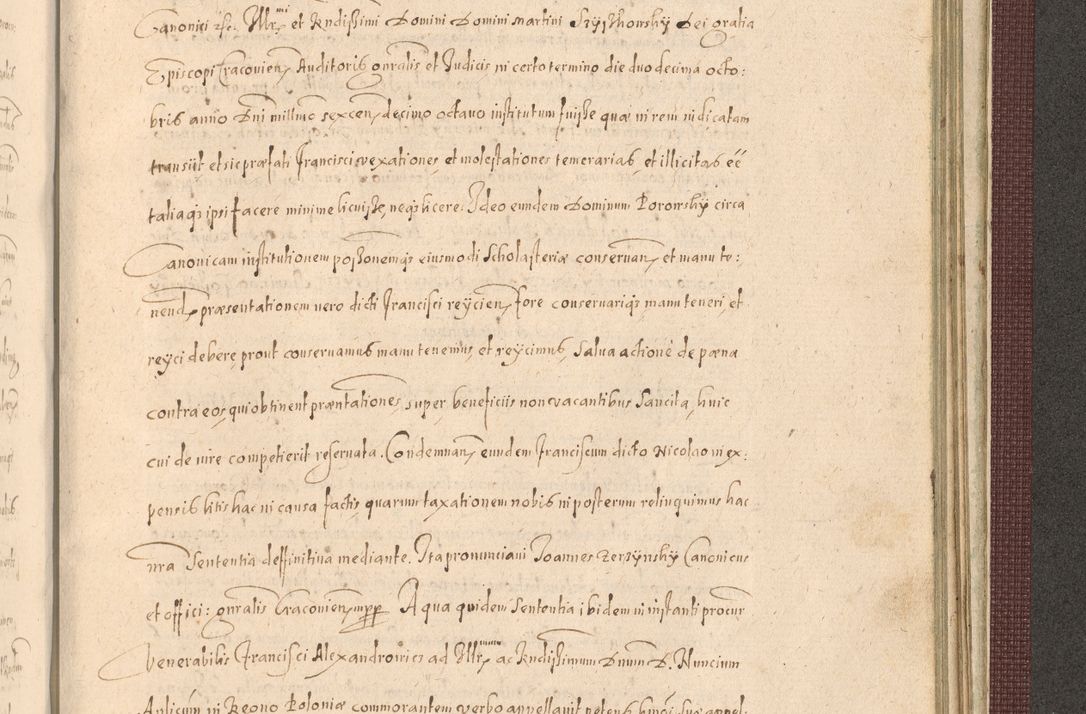 Canonici etc. Illrmi et Rndissimi Domini Domini Martini Szyszkowsky Dei gratia
Episcopi Cracovien, Auditoris gnralis et Judicis in certo termino die duodecima octo:
bris anno Dni millmo sexcen, decimo octavo institutum fuisse quæ in rem iudicatam
transiit et sic præfati Francisci vexationes et molestationes temerarias et illicitas eē
talia qȝ ipsi facere minime licuisse, neqȝ licere. Ideo eundem Dominum Porowsky circa
Canonicam institutionem possonemqȝ eiusmodi Scholasteriæ conservan, et manu te:
nend, præsentationem vero dicti Francisci reÿcien, fore conservariqȝ manu teneri, et
reÿci debere, prout conservamus manu tenemus, et reÿcimus, Salva actione de pæna
contra eos, qui obtinent præntationes, super beneficiis non vacantibus Sancita, huic
cui de iure competierit reservata. Condemnan, eundem Franciscum dicto Nicolao in ex:
pensis litis hac in causa factis, quarum taxationem nobis in posterum relinquimus hac
nra Sententia deffinitiva mediante. Ita pronunciavi Joannes Zerzynsky Canonicus
et offici: gnralis Cracovien, mpp A qua quidem Sententia ibidem in instanti procur
Venerabilis Francisci Alexandrowicz ad Illrmum ac Rndissimum Dnum D. Nuncium
Aplicum in Regno Poloniæ commorantem verbo appellavit petens hmōi suæ appel: